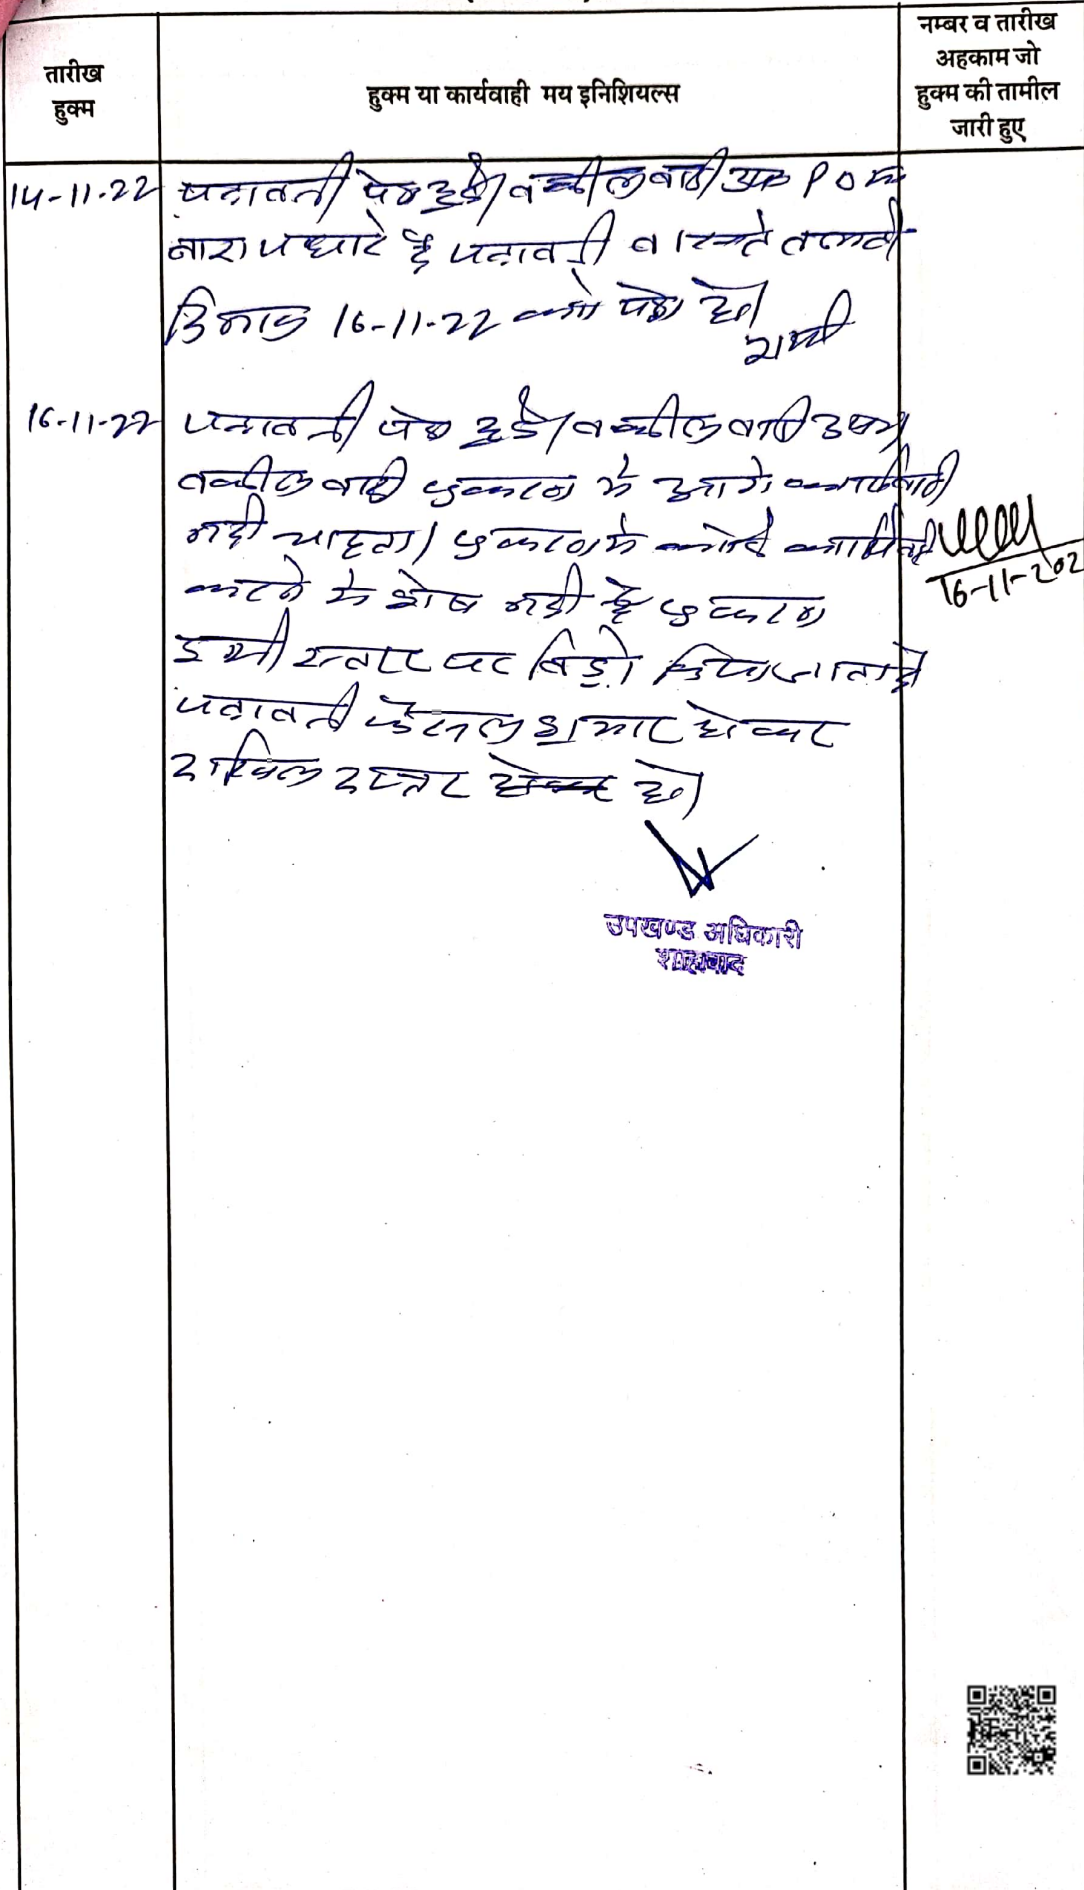 तारीख
हुक्म
हुक्म या कार्यवाही मय इनिशियल्स
नम्बर व तारीख
अहकाम जो
हुक्म की तामील
जारी हुए
14-11-22 पत्रावली पेश हुई। वकील वादी उप० P O
बारां पधारे है पत्रावली वास्ते तलबी
दिनांक 16-11-22 को पेश हो।
16-11-22 पत्रावली पेश हुई। वकील वादी उप०।
वकील वादी प्रकरण में आगे कार्यवाही
नही चाहता। प्रकरण में कोई कार्यवाही
करने में शेष नही है प्रकरण
इसी स्तर पर विड्रो किया जाता है
पत्रावली फैसल शुमार होकर
दाखिल दफ्तर हो।
16-11-202
उपखण्ड अधिकारी
शाहबाद